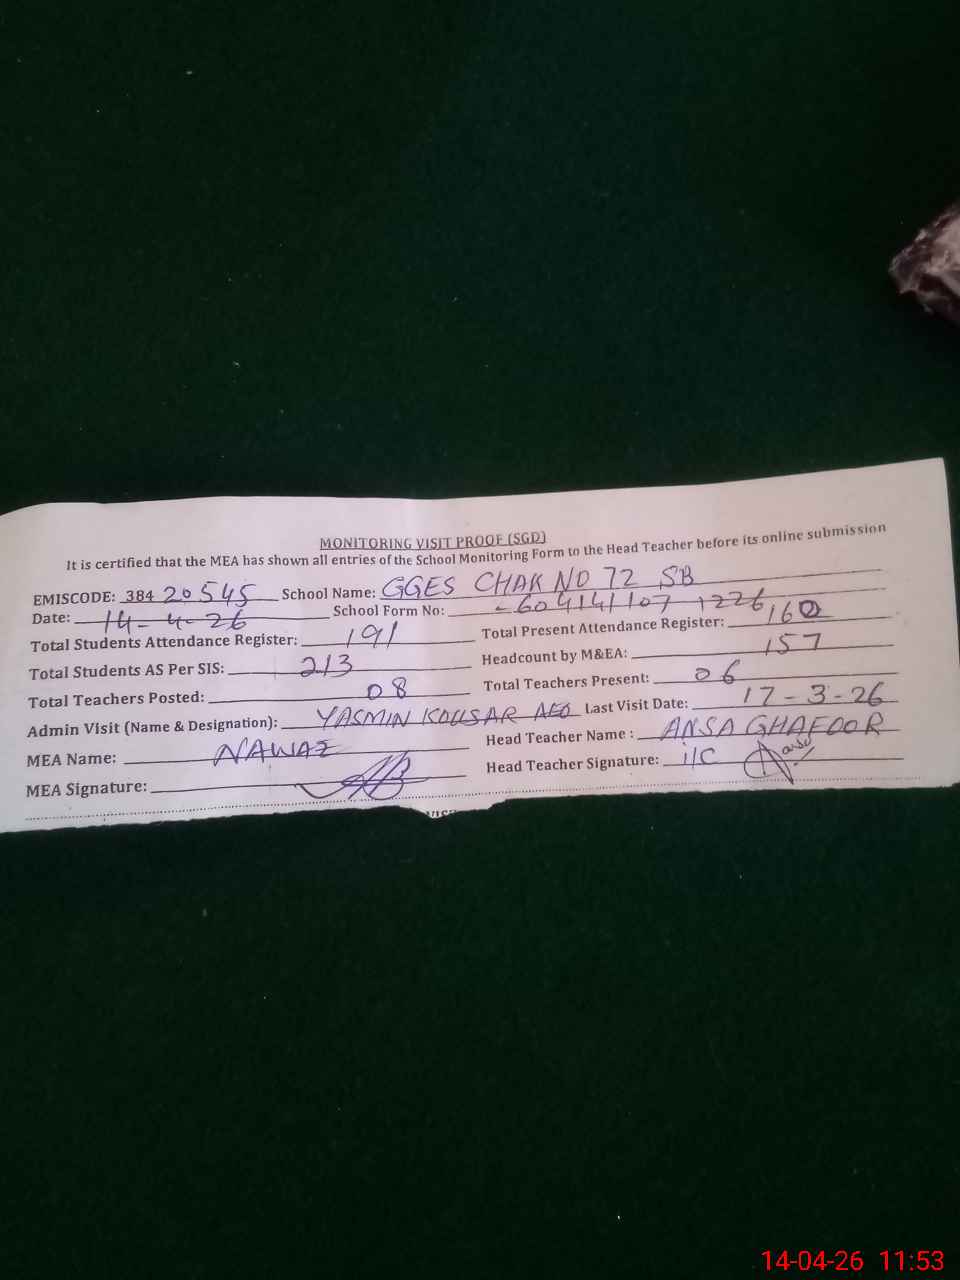 MONITORING VISIT PROOF (SGD)
It is certified that the MEA has shown all entries of the School Monitoring Form to the Head Teacher before its online submission
EMISCODE: 384 20545 School Name: GGES CHAK NO 72 SB
Date: 14-4-26 School Form No: -6041411071226
Total Students Attendance Register: 191 Total Present Attendance Register: 160
Total Students AS Per SIS: 213 Headcount by M&EA: 157
Total Teachers Posted: 08 Total Teachers Present: 06
Admin Visit (Name & Designation): YASMIN KOUSAR AEO Last Visit Date: 17-3-26
MEA Name: NAWAZ Head Teacher Name : ANSA GHAFOOR
MEA Signature: Head Teacher Signature: i/C
14-04-26 11:53